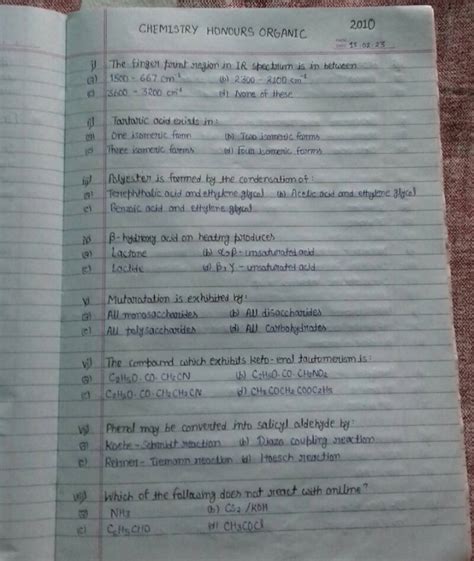 CHEMISTRY HONOURS ORGANIC 2010
i) The finger print region in IR spectrum is in between
(a) 1500 - 667 cm⁻¹ (b) 2300 - 2100 cm⁻¹
(c) 3600 - 3200 cm⁻¹ (d) None of these
ii) Tartaric acid exists in:
(a) One isomeric form (b) Two isomeric forms
(c) Three isomeric forms (d) Four isomeric forms
iii) Polyester is formed by the condensation of:
(a) Terephthalic acid and ethylene glycol (b) Acetic acid and ethylene glycol
(c) Benzoic acid and ethylene glycol
iv) β-hydroxy acid on heating produces
(a) Lactone (b) α,β-unsaturated acid
(c) Lactide (d) β,γ-unsaturated acid
v) Mutarotation is exhibited by:
(a) All monosaccharides (b) All disaccharides
(c) All polysaccharides (d) All Carbohydrates
vi) The compound which exhibits keto-enol tautomerism is:
(a) C₂H₅O·CO·CH₂CN (b) C₂H₅O·CO·CH₂NO₂
(c) C₂H₅O·CO·CH₂CH₂CN (d) CH₃COCH₂COOC₂H₅
vii) Phenol may be converted into salicyl aldehyde by:
(a) Kolbe-Schmidt reaction (b) Diazo coupling reaction
(c) Reimer-Tiemann reaction (d) Hoesch reaction
viii) Which of the following does not react with aniline?
(a) NH₃ (b) /KOH
(c) C₆H₅CHO (d) CH₃COCl